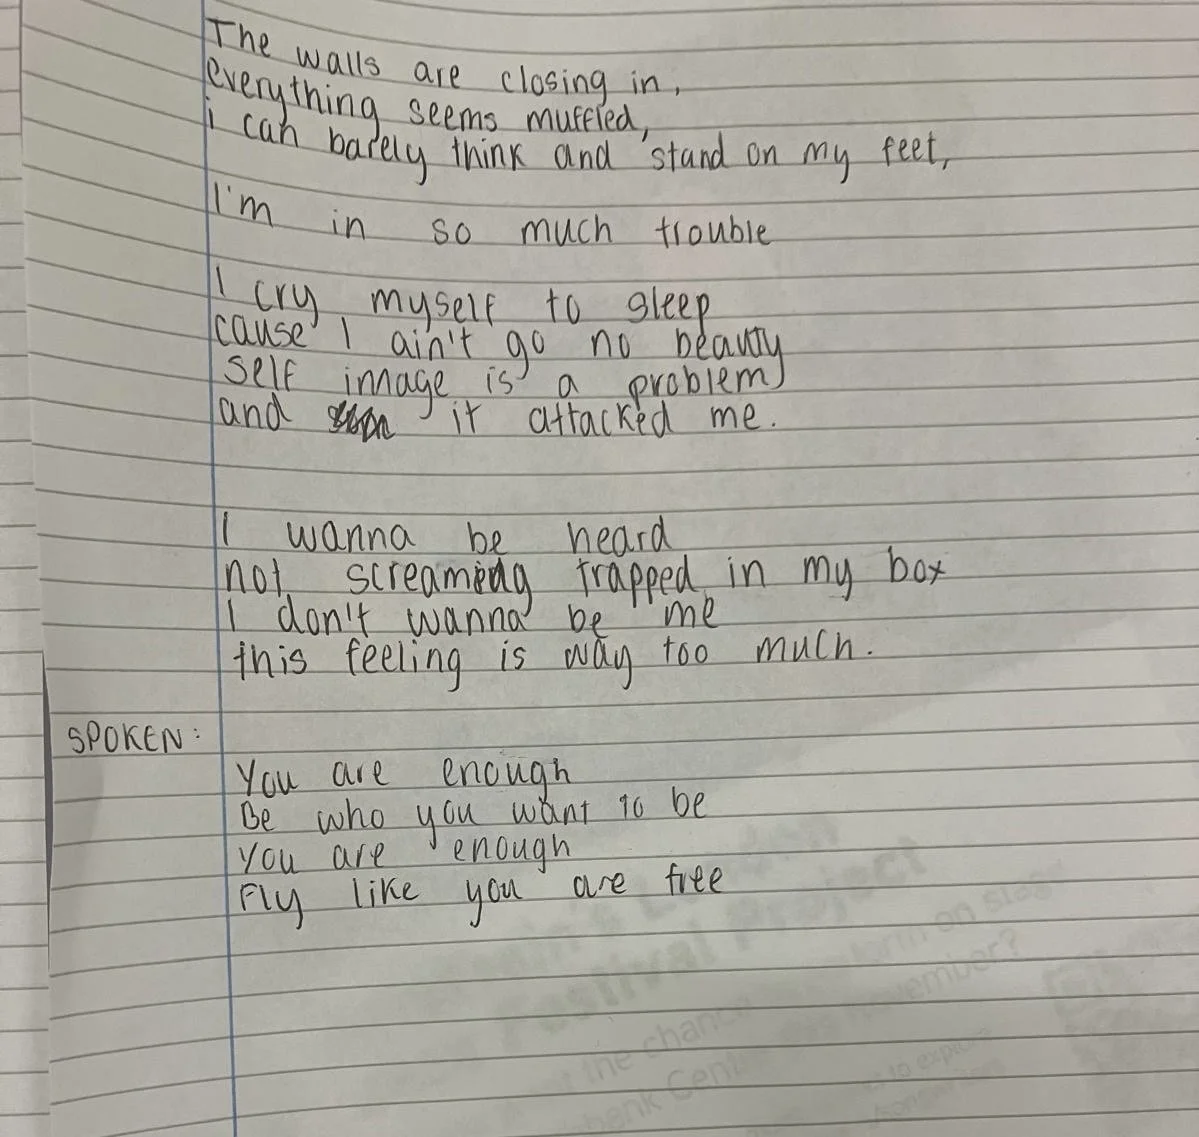 The walls are closing in,
everything seems muffled,
i can barely think and stand on my feet,
I'm in so much trouble
I cry myself to sleep
cause I ain't go no beauty
self image is a problem
and it attacked me.
I wanna be heard
not screaming trapped in my box
I don't wanna be me
this feeling is way too much.
SPOKEN:
You are enough
Be who you want to be
You are enough
Fly like you are free
Festival Project
on stage
the chance